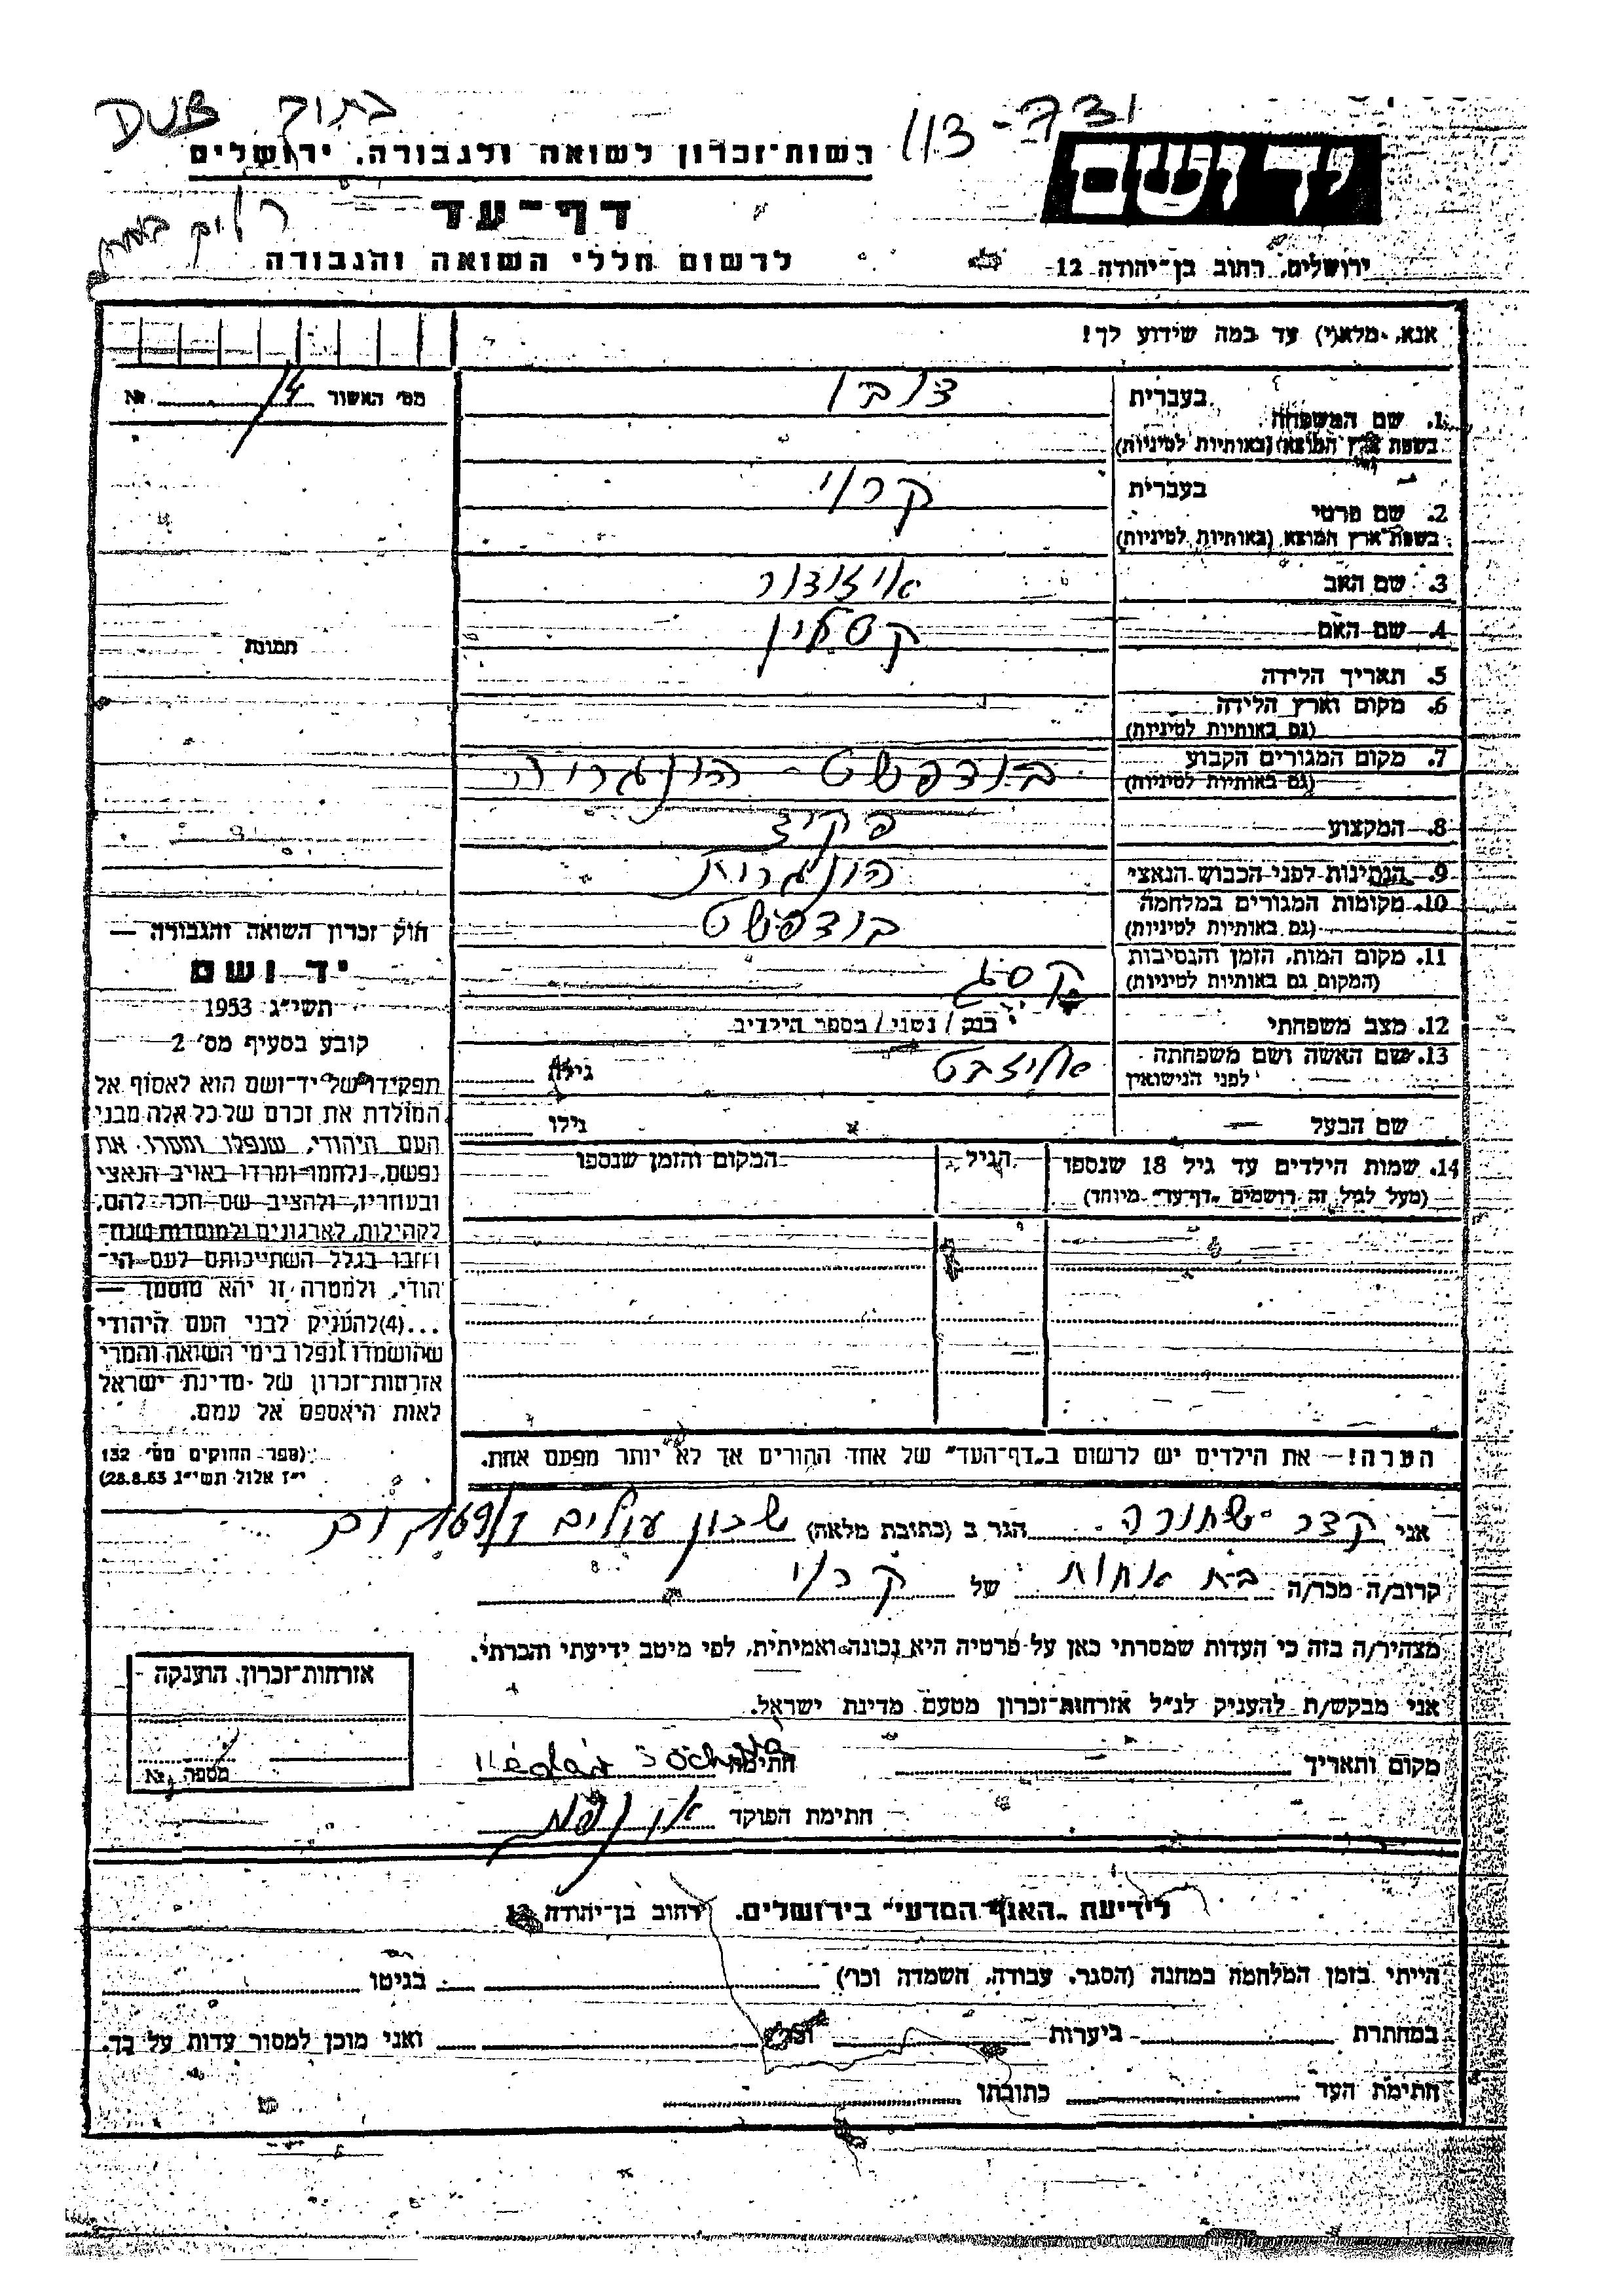 113-731
רשות-זכרון לשואה ולגבורה, ירושלים
יד ושם
דף-עד
לרשום חללי השואה והגבורה
ירושלים, רחוב בן-יהודה 12
אנא, מלא(י) עד כמה שידוע לך!
מס' האשור № 14
1. שם המשפחה בעברית
בשפת ארץ המוצא (באותיות לטיניות)
2. שם פרטי בעברית קרוי
בשפת ארץ המוצא (באותיות לטיניות)
3. שם האב איזודור
4. שם האם קטלין
תמונה
5. תאריך הלידה
6. מקום וארץ הלידה
(גם באותיות לטיניות)
7. מקום המגורים הקבוע בודפשט - הונגריה
(גם באותיות לטיניות)
8. המקצוע פקיד
9. הנתינות לפני הכבוש הנאצי הונגרית
10. מקומות המגורים במלחמה בודפשט
(גם באותיות לטיניות)
11. מקום המות, הזמן והנסיבות
(המקום גם באותיות לטיניות)
12. מצב משפחתי
13. שם האשה ושם משפחתה אליזבט גילה
לפני הנישואין
שם הבעל גילו
14. שמות הילדים עד גיל 18 שנספו הגיל המקום והזמן שנספו
(מעל לגיל זה רושמים "דף-עד" מיוחד)
הערה! — את הילדים יש לרשום ב"דף-העד" של אחד ההורים אך לא יותר מפעם אחת.
חוק זכרון השואה והגבורה —
יד ושם
תשי"ג 1953
קובע בסעיף מס' 2
תפקידו של יד-ושם הוא לאסוף אל
המולדת את זכרם של כל אלה מבני
העם היהודי, שנפלו ומסרו את
נפשם, נלחמו ומרדו באויב הנאצי
ובעוזריו, ולהציב שם וזכר להם,
לקהילות, לארגונים ולמוסדות שנח־
רבו בגלל השתייכותם לעם הי־
הודי, ולמטרה זו יהא מוסמך —
...(4) להעניק לבני העם היהודי
שהושמדו ונפלו בימי השואה והמרי
אזרחות-זכרון של מדינת ישראל
לאות היאספם אל עמם.
(ספר החוקים מס' 132
י"ז אלול תשי"ג 28.8.53)
אני קדר שחורה הגר ב (כתובת מלאה) שכון עולים
קרוב/ה מכר/ה בת אחות של קרוי
מצהיר/ה בזה כי העדות שמסרתי כאן על פרטיה היא נכונה ואמיתית, לפי מיטב ידיעתי והכרתי.
אני מבקש/ת להעניק לנ"ל אזרחות-זכרון מטעם מדינת ישראל.
מקום ותאריך חתימה
חתימת הפוקד
אזרחות-זכרון הוענקה
מספר №
לידיעת "האגף המדעי" בירושלים, רחוב בן-יהודה 12
הייתי בזמן המלחמה במחנה (הסגר, עבודה, השמדה וכו') בגיטו
במחתרת ביערות ואני מוכן למסור עדות על כך.
חתימת העד כתובתו